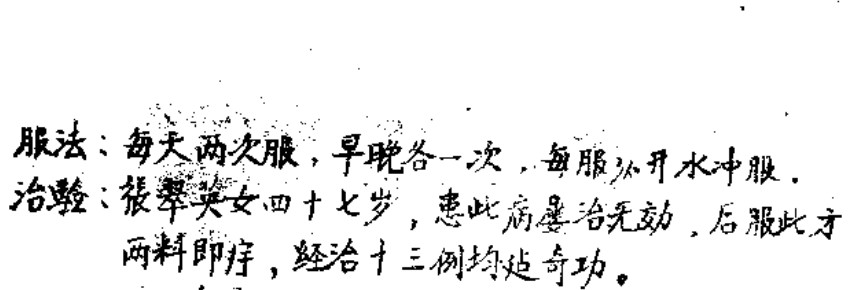 服法：每天两次服，早晚各一次，每服 开水冲服．
治验：張翠英女四十七岁，患此病屡治无効，后服此方
两料即痊，经治十三例均 奇功。